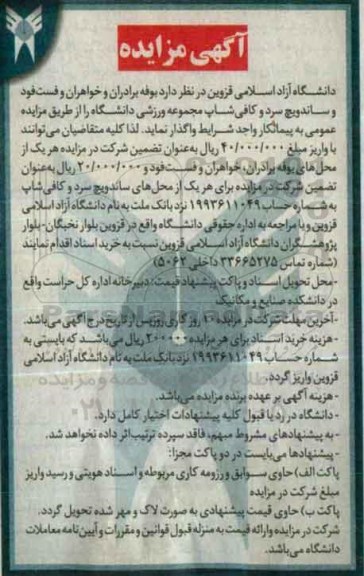 آگهی مزایده
دانشگاه آزاد اسلامی قزوین در نظر دارد بوفه برادران و خواهران و فست فود
و ساندویچ سرد و کافی شاپ مجموعه ورزشی دانشگاه را از طریق مزایده
عمومی به پیمانکار واجد شرایط واگذار نماید. لذا کلیه متقاضیان می توانند
با واریز مبلغ ۴۰/۰۰۰/۰۰۰ ریال به عنوان تضمین شرکت در مزایده هر یک از
محل های بوفه برادران، خواهران و فست فود و ۲۰/۰۰۰/۰۰۰ ریال به عنوان
تضمین شرکت در مزایده برای هر یک از محل های ساندویچ سرد و کافی شاپ
به شماره حساب ۱۹۹۳۶۱۱۰۴۹ نزد بانک ملت به نام دانشگاه آزاد اسلامی
قزوین و با مراجعه به اداره حقوقی دانشگاه واقع در قزوین بلوار نخبگان- بلوار
پژوهشگران دانشگاه آزاد اسلامی قزوین نسبت به خرید اسناد اقدام نمایند
(شماره تماس ۳۳۶۶۵۲۷۵ داخلی ۵۰۶۲)
-محل تحویل اسناد و پاکت پیشنهاد قیمت: دبیرخانه اداره کل حراست واقع
در دانشکده صنایع و مکانیک
-آخرین مهلت شرکت در مزایده ۱۰ روز کاری روز پس از تاریخ درج آگهی می باشد.
- هزینه خرید اسناد برای هر مزایده ریال می باشد که بایستی به
شماره حساب ۱۹۹۳۶۱۱۰۴۹ نزد بانک ملت به نام دانشگاه آزاد اسلامی
قزوین واریز گردد.
- هزینه آگهی بر عهده برنده مزایده می باشد.
- دانشگاه در رد یا قبول کلیه پیشنهادات اختیار کامل دارد.
- به پیشنهادهای مشروط مبهم، فاقد سپرده ترتیب اثر داده نخواهد شد.
- پیشنهادها می بایست در دو پاکت مجزا:
پاکت الف) حاوی سوابق و رزومه کاری مربوطه و اسناد هویتی و رسید واریز
مبلغ شرکت در مزایده
پاکت ب) حاوی قیمت پیشنهادی به صورت لاک و مهر شده تحویل گردد.
شرکت در مزایده و ارائه قیمت به منزله قبول قوانین و مقررات و آیین نامه معاملات
دانشگاه می باشد.